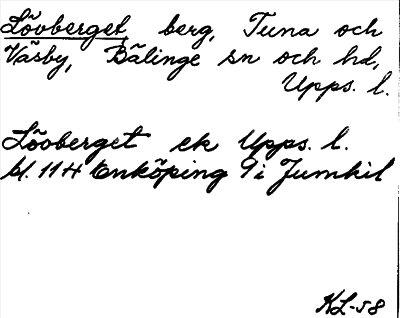 Lövberget berg, Tuna och
Väsby, Bälinge sn och hd,
Upps. l.
Lövberget ek Upps. l.
bl. 11 H Enköping 9i Jumkil
KL-58